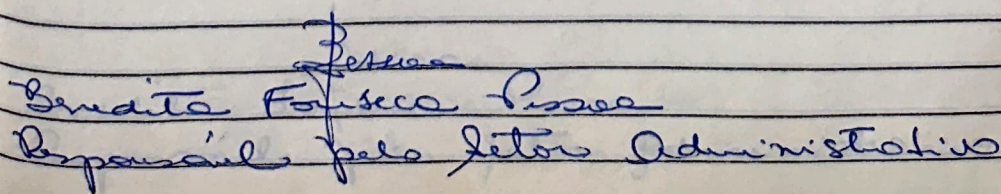 Pessoa
Benedita Fonseca Pessoa
Responsável pelo Setor Administrativo